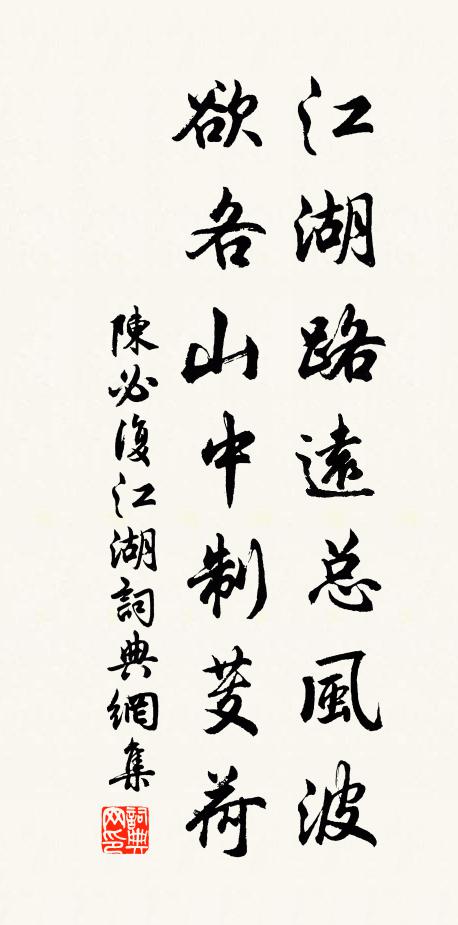 江湖路遠总風波
欲各山中制芰荷
陳必復江湖詞典網集
詞典网印